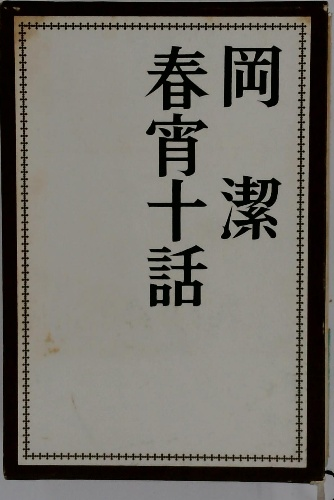 岡 潔
春宵十話